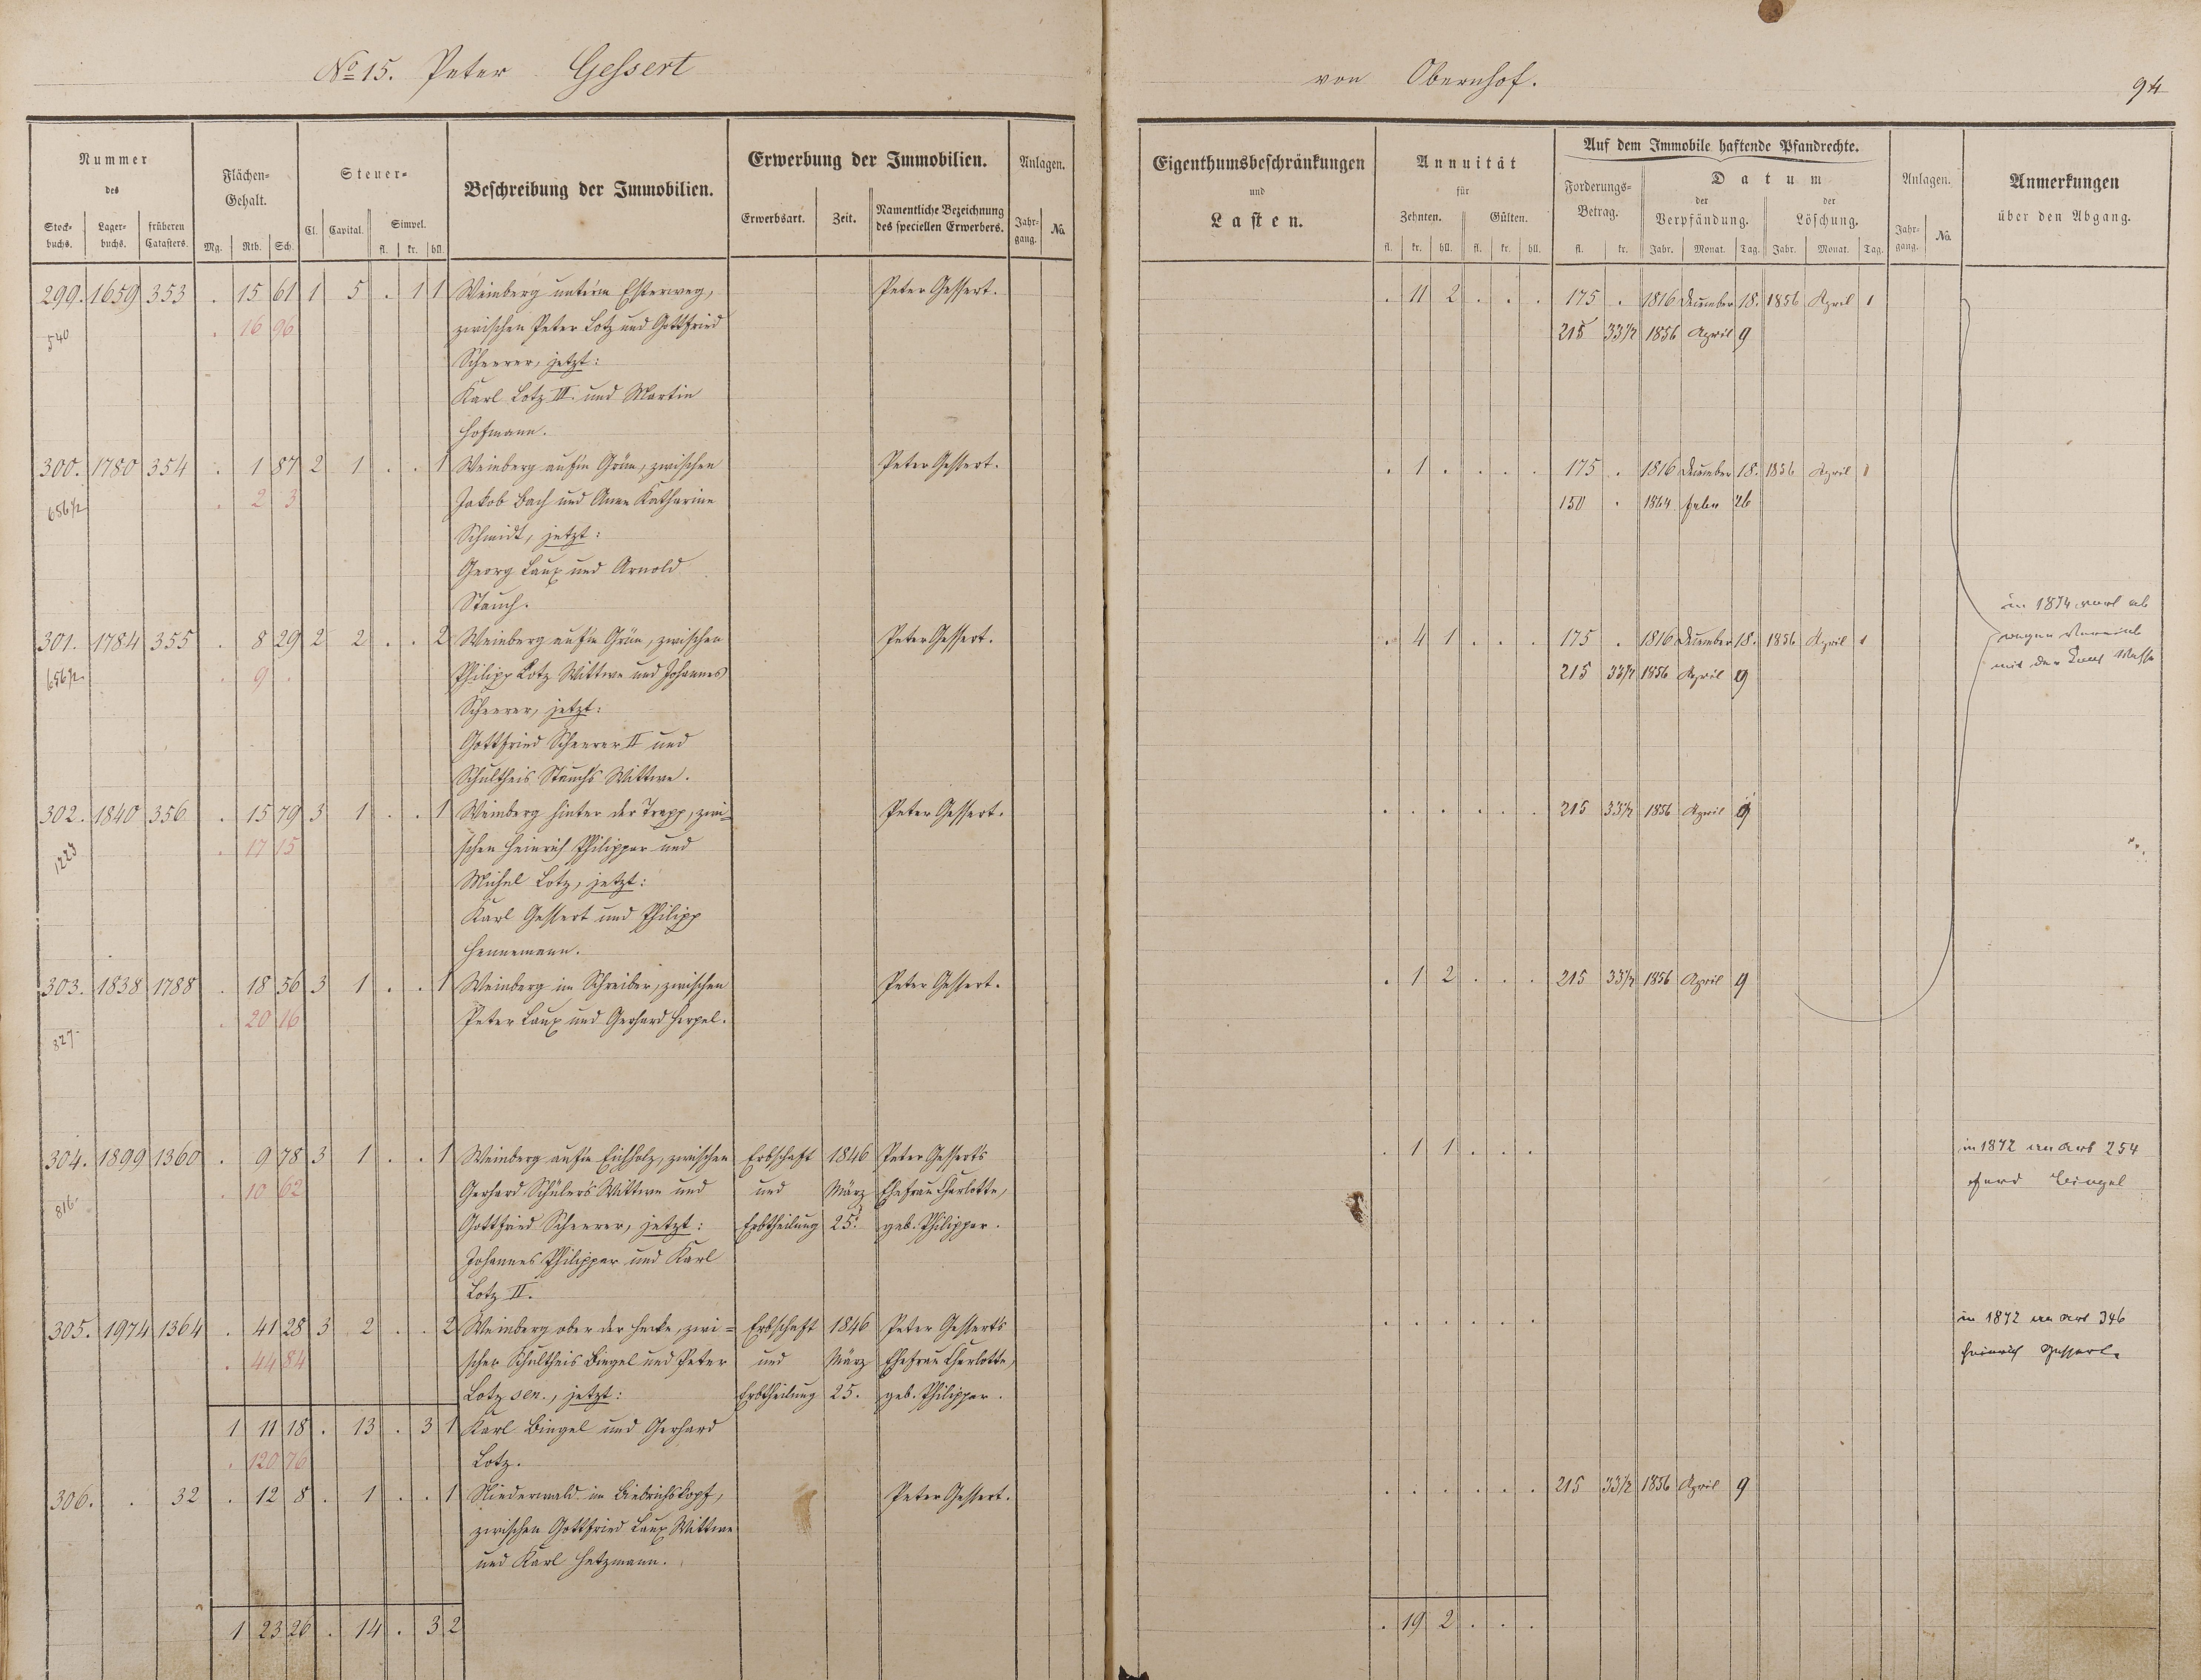 No 15. Peter Gessert
von Obernhof.
94
Nummer
des
Stock-
buchs.
Lager-
buchs.
früheren
Catasters.
Flächen-
Gehalt.
Mg. Rth. Sch.
Steuer-
Cl. Capital.
Simpel.
fl. kr. hll.
Beschreibung der Immobilien.
Erwerbung der Immobilien.
Erwerbsart. Zeit.
Namentliche Bezeichnung
des speciellen Erwerbers.
Anlagen.
Jahr-
gang.
No.
Eigenthumsbeschränkungen
und
Lasten.
Annuität
für
Zehnten. Gülten.
fl. kr. hll. fl. kr. hll.
Auf dem Immobile haftende Pfandrechte.
Forderungs-
Betrag.
fl. kr.
Datum
der
Verpfändung.
der
Löschung.
Jahr. Monat. Tag. Jahr. Monat. Tag.
Anlagen.
Jahr-
gang.
No.
Anmerkungen
über den Abgang.
299. 1659 353 . 15 61 1 5 . 1 1 Weinberg unterm Esterweg, Peter Gessert. . 11 2 . . . 175 . 1816 December 18. 1856 April 1
540 . 16 96 zwischen Peter Lotz und Gottfried 215 33½ 1856 April 9
Scheerer, jetzt:
Karl Lotz III. und Martin
Hofmann.
300. 1780 354 . 1 87 2 1 . . 1 Weinberg aufm Grün, zwischen Peter Gessert. . 1 . . . . 175 . 1816 December 18. 1856 April 1
656½ . 2 3 Jakob Bach und Anna Katharine 150 . 1864 Febr 26
Schmidt, jetzt:
Georg Laux und Arnold
Stauch.
in 1874
301. 1784 355 . 8 29 2 2 . . 2 Weinberg aufm Grün, zwischen Peter Gessert. . 4 1 . . . 175 . 1816 December 18. 1856 April 1
wegen
656½ . 9 . Philipp Lotz Wittwe und Johannes 215 33½ 1856 April 9
mit der
Scheerer, jetzt:
Gottfried Scheerer II und
Schultheis Stauch's Wittwe.
302. 1840 356 . 15 79 3 1 . . 1 Weinberg hinter der Trapp, zwi- Peter Gessert. . . . . . . 215 33½ 1856 April 9
1223 . 17 15 schen Heinrich Philippar und
Michel Lotz, jetzt:
Karl Gessert und Philipp
Hennemann.
303. 1838 1788 . 18 56 3 1 . . 1 Weinberg im Schreiber, zwischen Peter Gessert. . 1 2 . . . 215 33½ 1856 April 9
827 . 20 16 Peter Laux und Gerhard Herpel.
304. 1899 1360 . 9 78 3 1 . . 1 Weinberg aufm Eichholz, zwischen Erbschaft 1846 Peter Gesserts . 1 1 . . . in 1872 an Art 254
816 . 10 62 Gerhard Schüler's Wittwe und und März Ehefrau Charlotte, Ferd Bingel
Gottfried Scheerer, jetzt: Erbtheilung 25. geb. Philippar.
Johannes Philippar und Karl
Lotz II.
305. 1974 1364 . 41 28 3 2 . . 2 Weinberg ober der Hecke, zwi- Erbschaft 1846 Peter Gesserts . . . . . . in 1872 an Art 346
. 44 84 schen Schultheis Bingel und Peter und März Ehefrau Charlotte, Heinrich Gessert.
Lotz sen., jetzt: Erbtheilung 25. geb. Philippar.
1 11 18 . 13 . 3 1 Karl Bingel und Gerhard
. 120 76 Lotz.
306. . 32 . 12 8 . 1 . . 1 Niederwald im Biebrichskopf, Peter Gessert. . . . . . . 215 33½ 1856 April 9
zwischen Gottfried Laux Wittwe
und Karl Hetzmann.
1 23 26 . 14 . 3 2 . 19 2 . . .